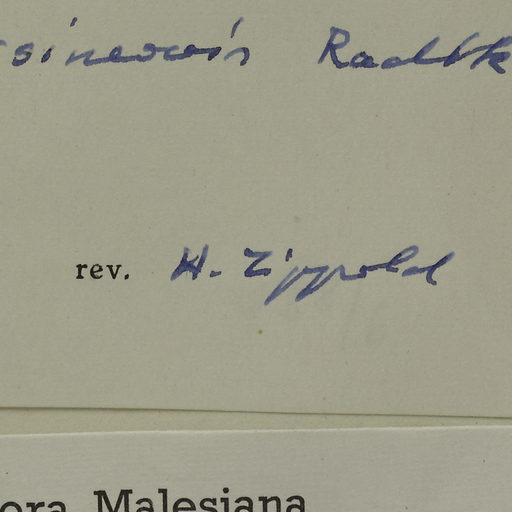 Radlk
rev. H. Zippold
ora Malesiana